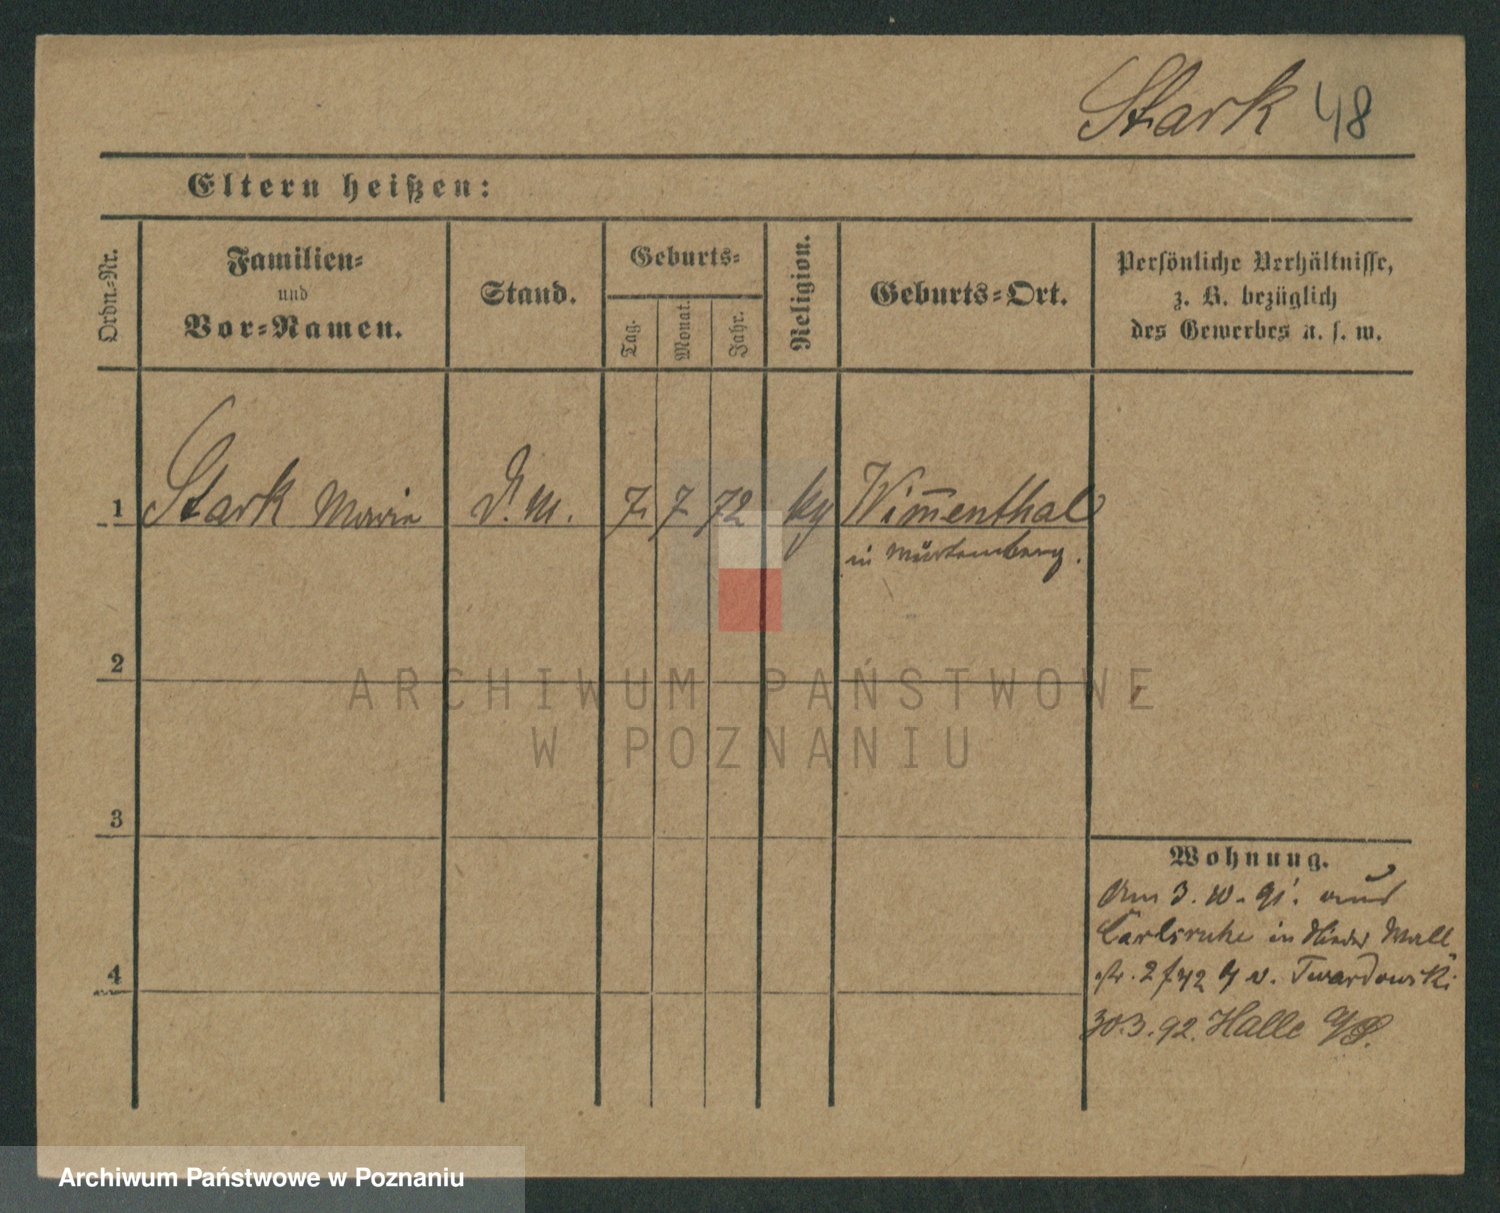 Stark 48
Eltern heißen:
Ordn.-Nr.
Familien-
und
Vor-Namen.
Stand.
Geburts-
Tag.
Monat.
Jahr.
Religion.
Geburts-Ort.
Persönliche Verhältnisse,
z. B. bezüglich
des Gewerbes u. s. w.
1 Stark Maria D. M. 7. 7 72 kg Wim̅enthal
in Würtemberg.
2
ARCHIWUM PAŃSTWOWE
W POZNANIU
3
Wohnung.
Am 3. 10. 91. aus
Carlsruhe in Wall
4
str. 2 v. Twardowski
30.3.92. Halle
Archiwum Państwowe w Poznaniu